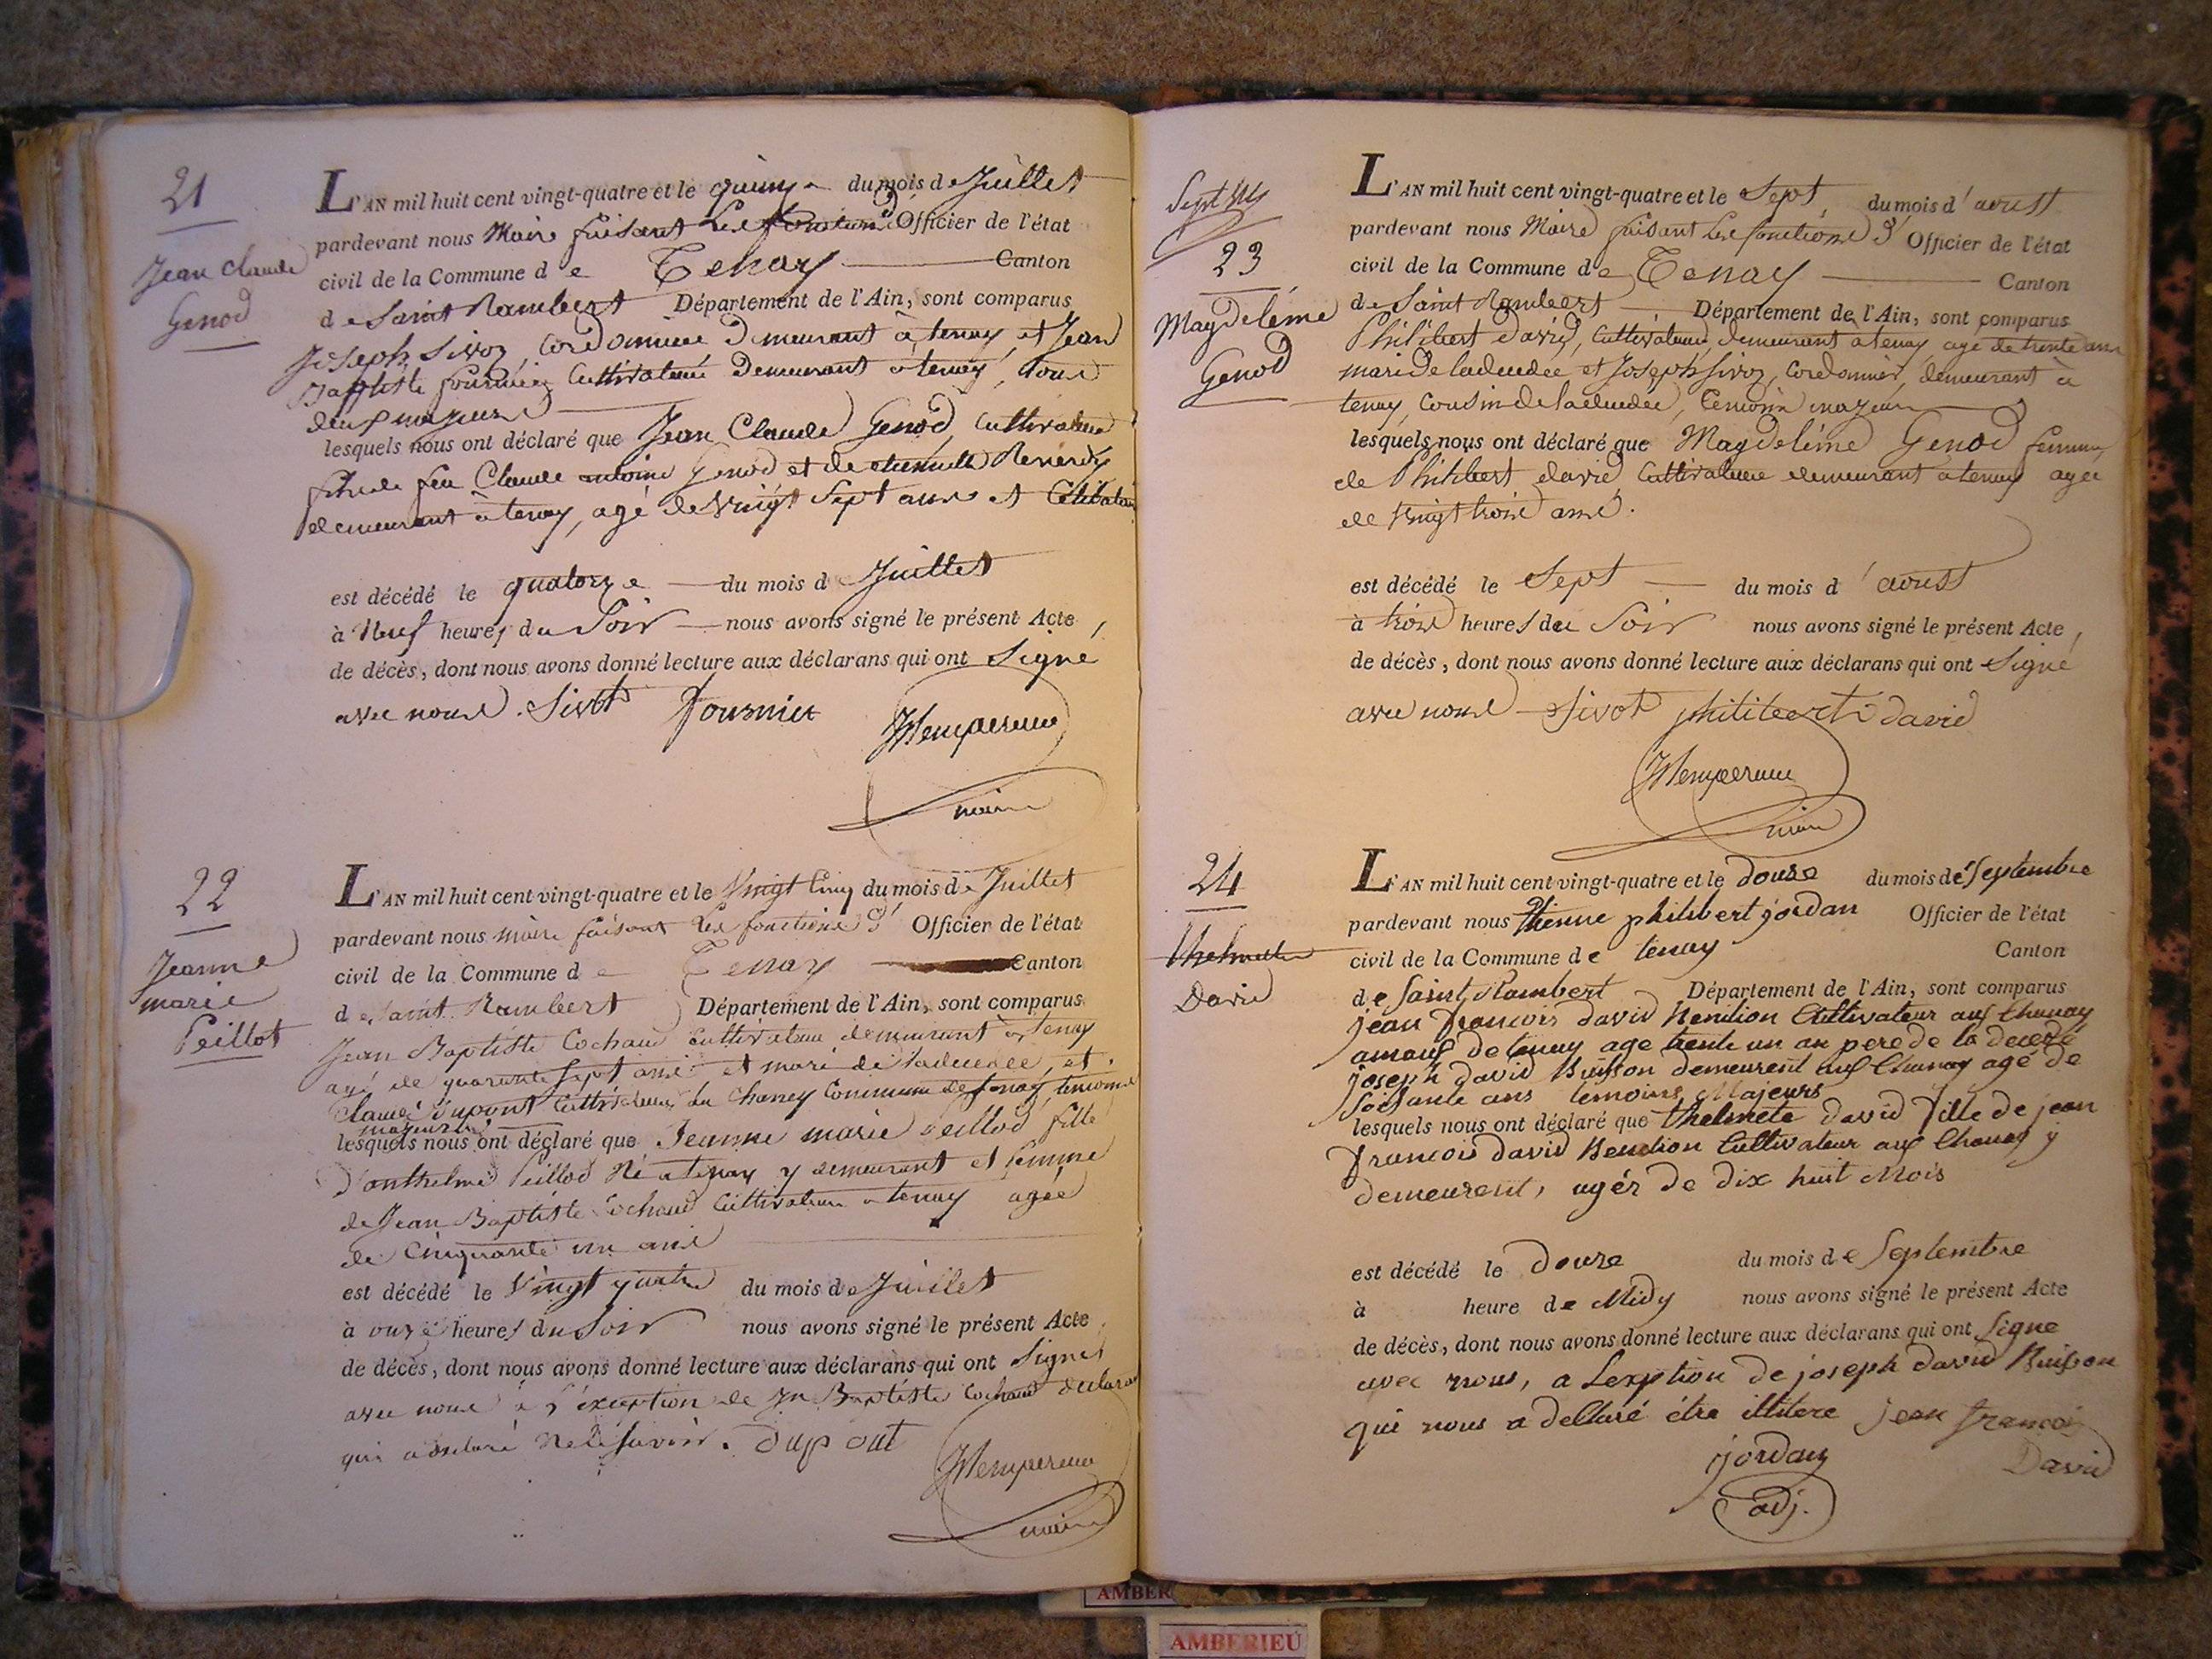 21
Jean Claude
Genod
L'AN mil huit cent vingt-quatre et le quinze du mois de Juillet
pardevant nous Maire faisant les fonctions d' Officier de l'état
civil de la Commune de Tenay Canton
de Saint Rambert Département de l'Ain, sont comparus
Joseph Sivoz, Cordonnier demeurant à tenay, et Jean
Baptiste fournier Cultivateur demeurant à tenay, tous
deux majeurs
lesquels nous ont déclaré que Jean Claude Genod, Cultivateur
fils de feu Claude antoine Genod et de
demeurant à tenay, agé de Vingt Sept ans et Célibataire
est décédé le quatorze du mois de Juillet
à Neuf heures du Soir nous avons signé le présent Acte,
de décès, dont nous avons donné lecture aux déclarans qui ont Signé
avec nous. Sivot fournier
maire
22
Jeanne
marie
Peillot
L'AN mil huit cent vingt-quatre et le Vingt Cinq du mois de Juillet
pardevant nous maire faisant les fonctions d' Officier de l'état
civil de la Commune de Tenay Canton
de Saint Rambert Département de l'Ain, sont comparus
Jean Baptiste Cochaud Cultivateur demeurant à Tenay
agé de quarante Sept ans et mari de la décédée, et
Claude Dupont Cultivateur du Chaney Commune de Tenay, temoins
majeurs
lesquels nous ont déclaré que Jeanne marie Peillod fille
d'anthelme Peillod Né a tenay y demeurant et femme
de Jean Baptiste Cochaud Cultivateur a tenay agée
de Cinquante un ans
est décédé le Vingt quatre du mois de Juillet
à onze heures du Soir nous avons signé le présent Acte
de décès, dont nous avons donné lecture aux déclarans qui ont Signé
avec nous à l'exception de Jn Baptiste Cochaud
qui a déclaré Ne le savoir. Dupont
maire
Sept
23
Magdeleine
Genod
L'AN mil huit cent vingt-quatre et le Sept du mois d'aoust
pardevant nous Maire faisant les fonctions d' Officier de l'état
civil de la Commune de Tenay Canton
de Saint Rambert Département de l'Ain, sont comparus
Philibert David, Cultivateur demeurant a tenay agé de trente ans
mari de la décédée et Joseph Sivoz, Cordonnier, demeurant a
tenay, Cousin de la décédée, temoins majeurs
lesquels nous ont déclaré que Magdeleine Genod femme
de Philibert david Cultivateur demeurant a tenay agée
de Vingt trois ans.
est décédé le Sept du mois d'aoust
à trois heures du Soir nous avons signé le présent Acte,
de décès, dont nous avons donné lecture aux déclarans qui ont Signé
avec nous Sivot philibert david
maire
24
David
L'AN mil huit cent vingt-quatre et le douze du mois de Septembre
pardevant nous Etienne philibert jordan Officier de l'état
civil de la Commune de tenay Canton
de Saint Rambert Département de l'Ain, sont comparus
jean francois david Cultivateur aux Chanay
de tenay age trente un an pere de la decede
joseph david Buisson demeurent aux Chanay agé de
Soisante ans temoins Majeurs
lesquels nous ont déclaré que thelmete david fille de jean
francois david Cultivateur aux Chanay y
demeurent, agér de dix huit Mois
est décédé le Douze du mois de Septembre
à heure de Midy nous avons signé le présent Acte
de décès, dont nous avons donné lecture aux déclarans qui ont Signe
avec nous, a Lexption de joseph david Buisson
qui nous a declaré étre illitere jean francois
jordan David
adj.
AMBER
AMBERIEU